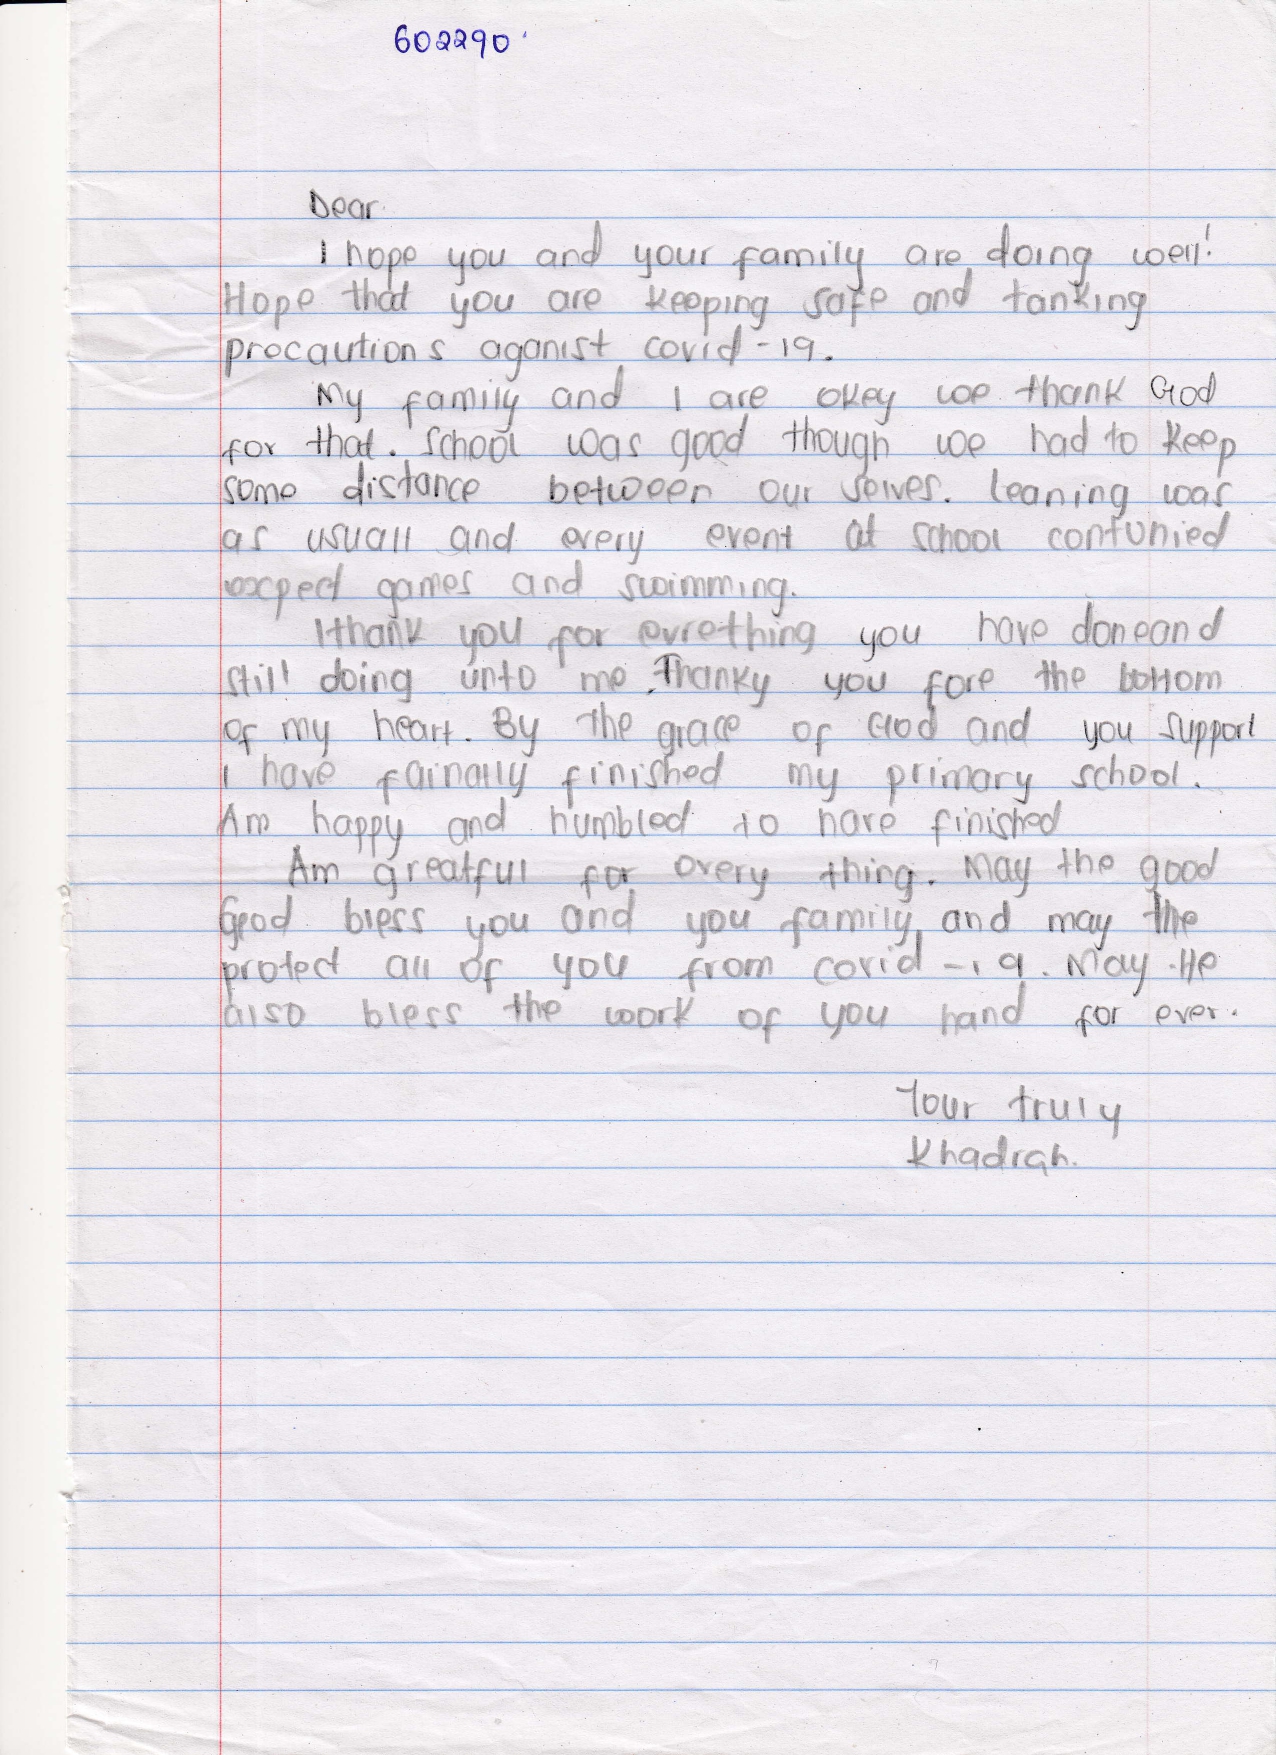 602290
Dear
I hope you and your family are doing well!
Hope that you are keeping safe and tanking
precautions aganist covid-19.
My family and I are okey we thank God
for that. School was good though we had to keep
some distance between our selves. leaning was
as usuall and every event at school contunied
expect games and swimming.
I thank you for evrething you have doneand
still doing unto me. Thanky you fore the bottom
of my heart. By the grace of God and you support
I have fainally finished my primary school.
Am happy and humbled to have finished
Am greatful for every thing. May the good
God bless you and you family, and may the
protect all of you from covid-19. May He
also bless the work of you hand for ever.
Your truly
Khadijah.